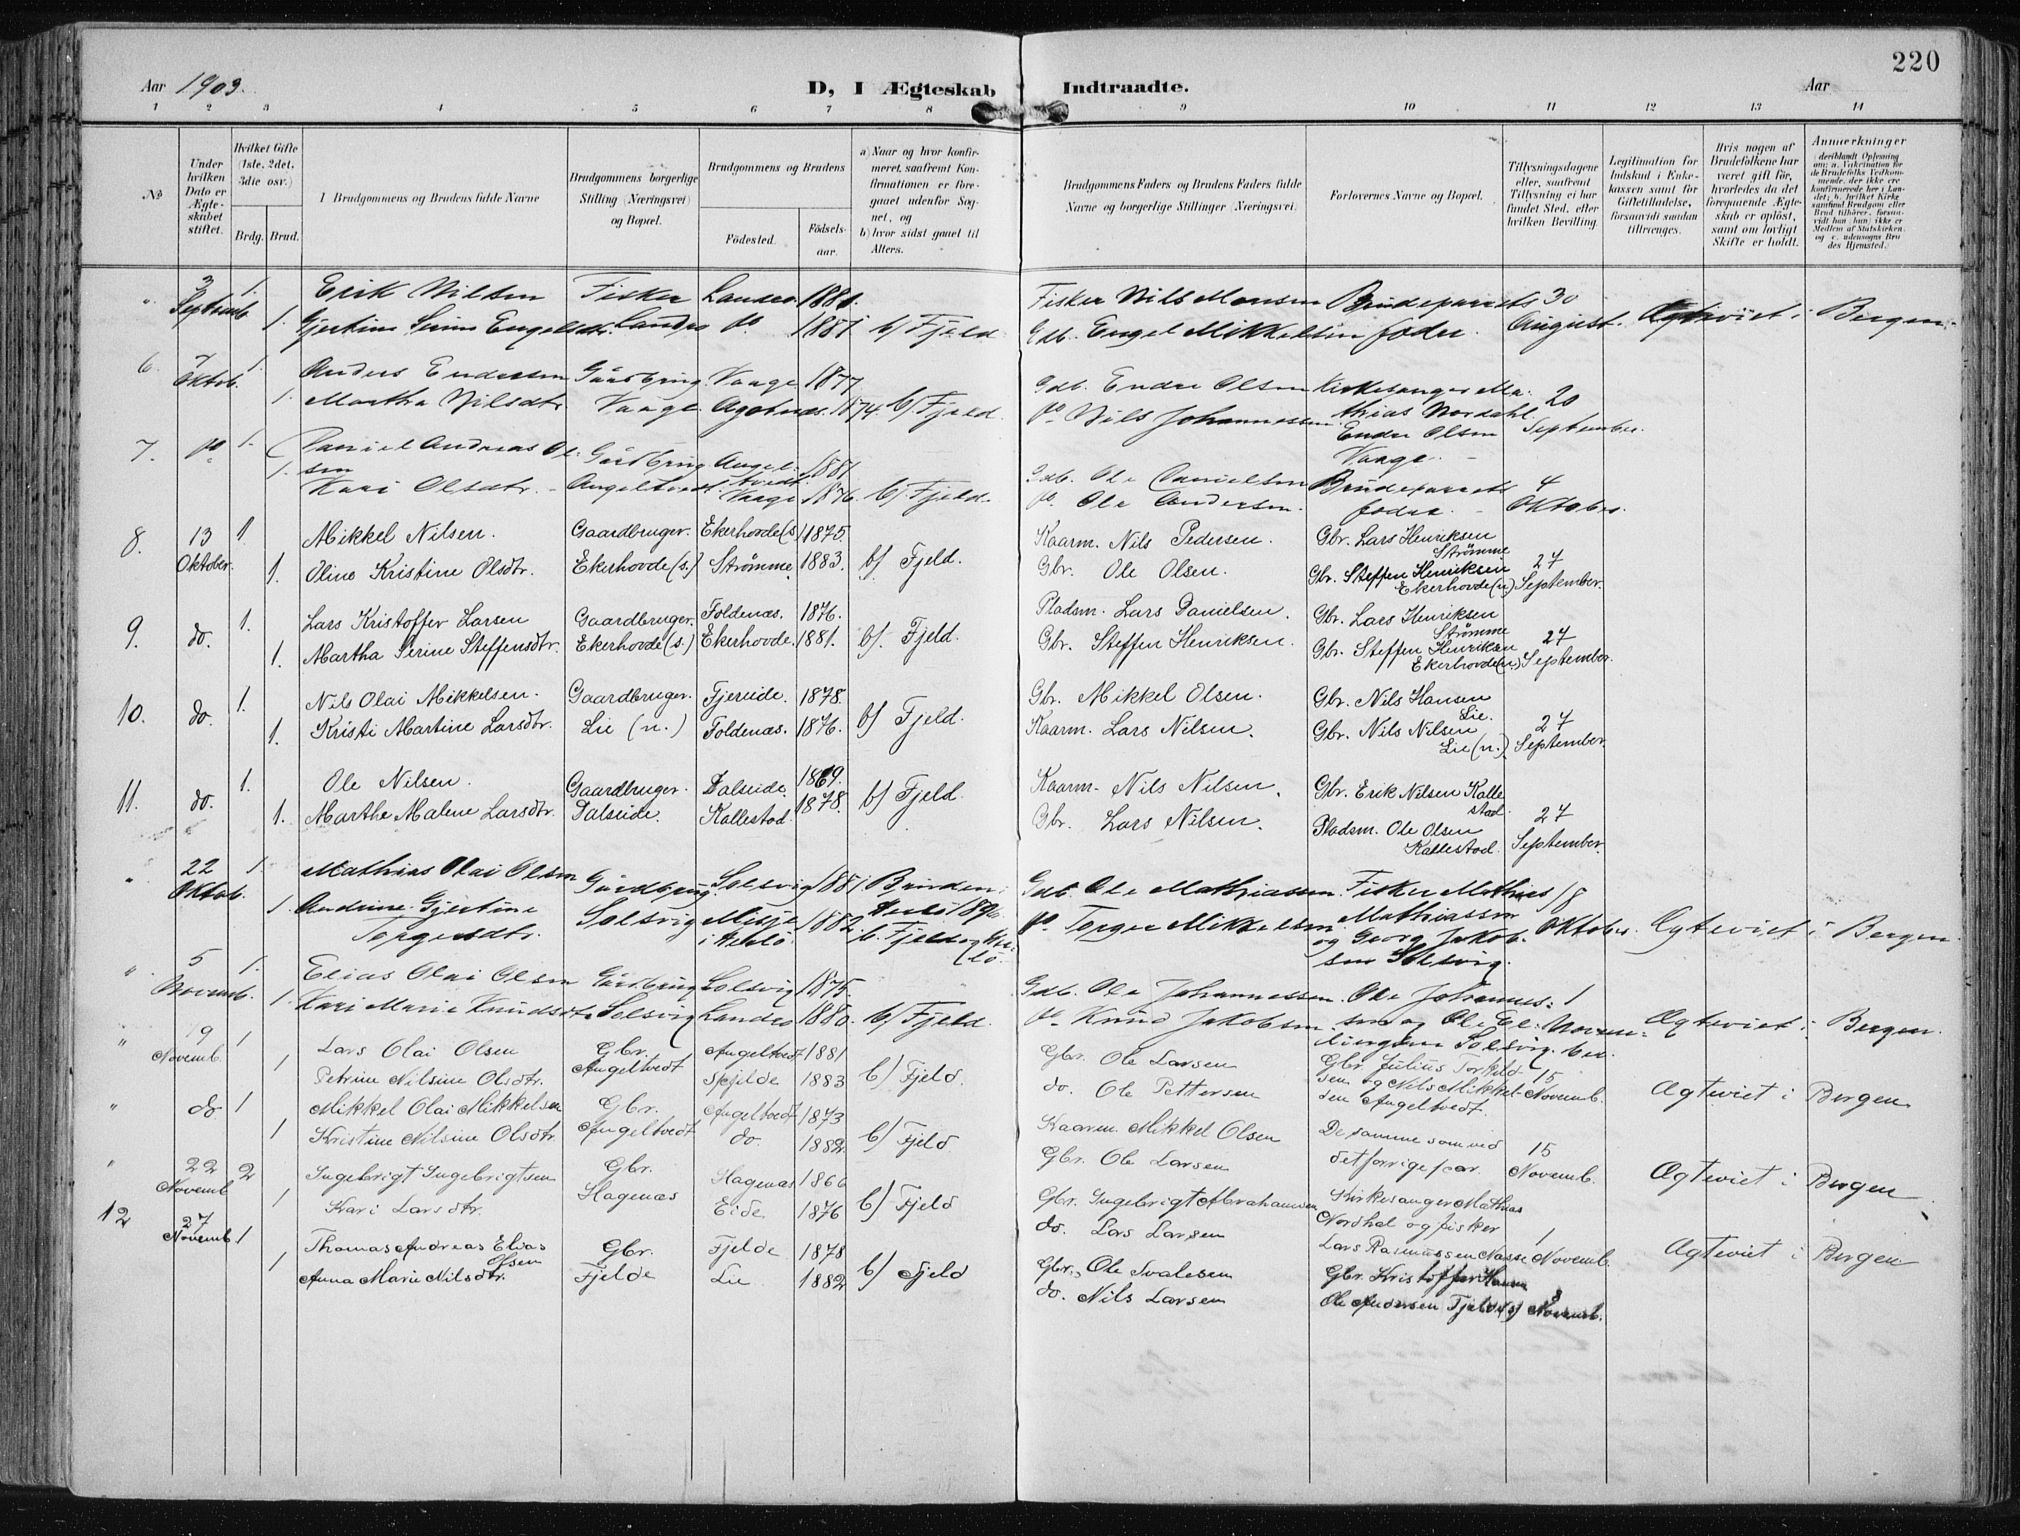 220
Aar 1903.
D, I Ægteskab Indtraadte.
Aar
1 2 3 4 5 6 7 8 9 10 11 12 13 14
No
Under hvilken Dato er Ægteskabet stiftet.
Hvilket Gifte (1ste, 2det, 3die osv.)
Brdg. Brud.
I Brudgommens og Brudens fulde Navne
Brudgommens borgerlige Stilling (Næringsvei) og Bopæl.
Brudgommens og Brudens
Fødested. Fødselsaar.
a) Naar og hvor konfirmeret, saafremt Konfirmationen er foregaaet udenfor Sognet, og
b) hvor sidst gaaet til Alters.
Brudgommens Faders og Brudens Faders fulde Navne og borgerlige Stillinger (Næringsvei)
Forlovernes Navne og Bopæl.
Tillysningsdagene eller, saafremt Tillysning ei har fundet Sted, efter hvilken Bevilling.
Legitimation for Indskud i Enkekassen samt for Giftetilladelse, forsaavidt saadan tiltrænges.
Hvis nogen af Brudefolkene har været gift før, hvorledes da det foregaaende Ægteskab er opløst, samt om lovligt Skifte er holdt.
Anmærkninger
" 3 1. Erik Nilsen Fisker Landro 1880. Fisker Nils Monsen Brudeparrets 30
Septemb. 1. Gjertine Serine Engelsdtr. Landro do. 1881 b/ Fjeld. Gdb. Engel Mikkelsen fødre. August. Ægteviet i Bergen.
6. 7 1. Anders Endersen Gårdbrug. Vaage 1877 Gdb. Endre Olsen Kirkesanger Ma-
Oktob. 1. Martha Nilsdtr. Vaage Agotnæs. 1874. b/ Fjeld. do Nils Johannessen thias Nordahl. 20
Endre Olsen September.
Vaage.
7. do 1. Daniel Andreas Ol- Gårdbrug Angel- 1881
1. sen tvedt. Gdb. Ole Danielsen Brudeparrets 4
Kari Olsdtr. Angeltvedt. Vaage 1876. b/ Fjeld. do. Ole Andersen. fødre. Oktober.
8. 13 1 Mikkel Nilsen. Gaardbruger. Ekerhovde (s.) 1875. Kaarm. Nils Pedersen. Gbr. Lars Henriksen
Strømme
Oktober. 1. Oline Kristine Olsdtr. Ekerhovde (s.) Strømme 1883. b/ Fjeld. Gbr. Ole Olsen. Gbr. Steffen Henriksen 27
Ekerhovde (n.) September.
9. do. 1. Lars Kristoffer Larsen Gaardbruger. Foldenæs. 1876. Pladsm. Lars Danielsen. Gbr. Lars Henriksen
Strømme
1. Martha Serine Steffensdtr. Ekerhovde (s.) Ekerhovde. 1881. b/. Fjeld. Gbr. Steffen Henriksen. Gbr. Steffen Henriksen 27
Ekerhovde (n.) September.
10. do. 1. Nils Olai Mikkelsen. Gaardbruger. Fjereide. 1878. Gbr. Mikkel Olsen. Gbr. Nils Hansen
Lie.
1. Kristi Martine Larsdtr. Lie (n.) Foldenæs. 1876. b/ Fjeld. Kaarm. Lars Nilsen. Gbr. Nils Nilsen 27
Lie (n.) September.
11. do. 1. Ole Nilsen. Gaardbruger. Dalseide. 1869. Kaarm. Nils Nilsen. Gbr. Erik Nilsen Kalle
stad.
1. Marthe Malene Larsdtr. Dalseide. Kallestad. 1878. b/ Fjeld. Gbr. Lars Nilsen. Pladsm. Ole Olsen 27
Kallestad. September.
" 22 1. Mathias Olai Olsen Gårdbrug. Solsvig 1881 Bruden i Gdb. Ole Mathiassen Fisker Mathias 18
Oktob. 1. Andrine Gjertine Solsvig Misje 1882. Herlö 1896 do. Torger Mikkelsen Mathiassen Oktober. Ægteviet i Bergen.
Torgersdtr. i Herlö b. Fjeld og Her- og Georg Jakob-
lö. sen Solsvig.
" 5 1. Elias Olai Olsen Gårdbrug Solsvig 1875 Gdb. Ole Johannessen. Ole Johannes- 1
Novemb. 1. Kari Marie Knudsdtr. Solsvig Landro 1880. b/ Fjeld. do Knud Jakobsen sen og Ole El- Novem- Ægteviet i Bergen.
lingsen Solsvig. ber
" 19 1 Lars Olai Olsen Gbr. Angeltvedt 1881 Gbr. Ole Larsen Gbr. Julius Torkild-
Novemb. 1 Petrine Nilsine Olsdtr. Angeltvedt Skjelde 1883 b) Fjeld. do. Ole Pettersen sen og Nils Mikkel- 15 Novemb. Ægteviet i Bergen
sen Angeltvedt.
" do 1 Mikkel Olai Mikkelsen Gbr. Angeltvedt 1873 Kaarm. Mikkel Olsen De samme som ved 15
1 Kristine Nilsine Olsdtr. Angeltvedt do. 1882 b) Fjeld Gbr. Ole Larsen det forrige par. Novemb. Ægteviet i Bergen
" 22 2 Ingebrigt Ingebrigtsen Gbr. Hagenæs 1866 Gbr. Ingebrigt Abrahamsen Kirkesanger Mathias
Novemb 1 Kari Larsdtr. Hagenæs Eide 1876 b) Fjeld do. Lars Larsen Nordhal og fisker 1
Lars Rasmussen Næsse Novemb. Ægteviet i Bergen
12 27 1 Thomas Andreas Elias Olsen Gbr. Fjelde 1878 Gbr. Ole Ivalesen Gbr. Kristoffer Hansen
Novemb. 1 Anna Marie Nilsdtr. Fjelde Lie 1882 b) Fjeld do. Nils Larsen Ole Andersen Fjelde (s) Novemb.